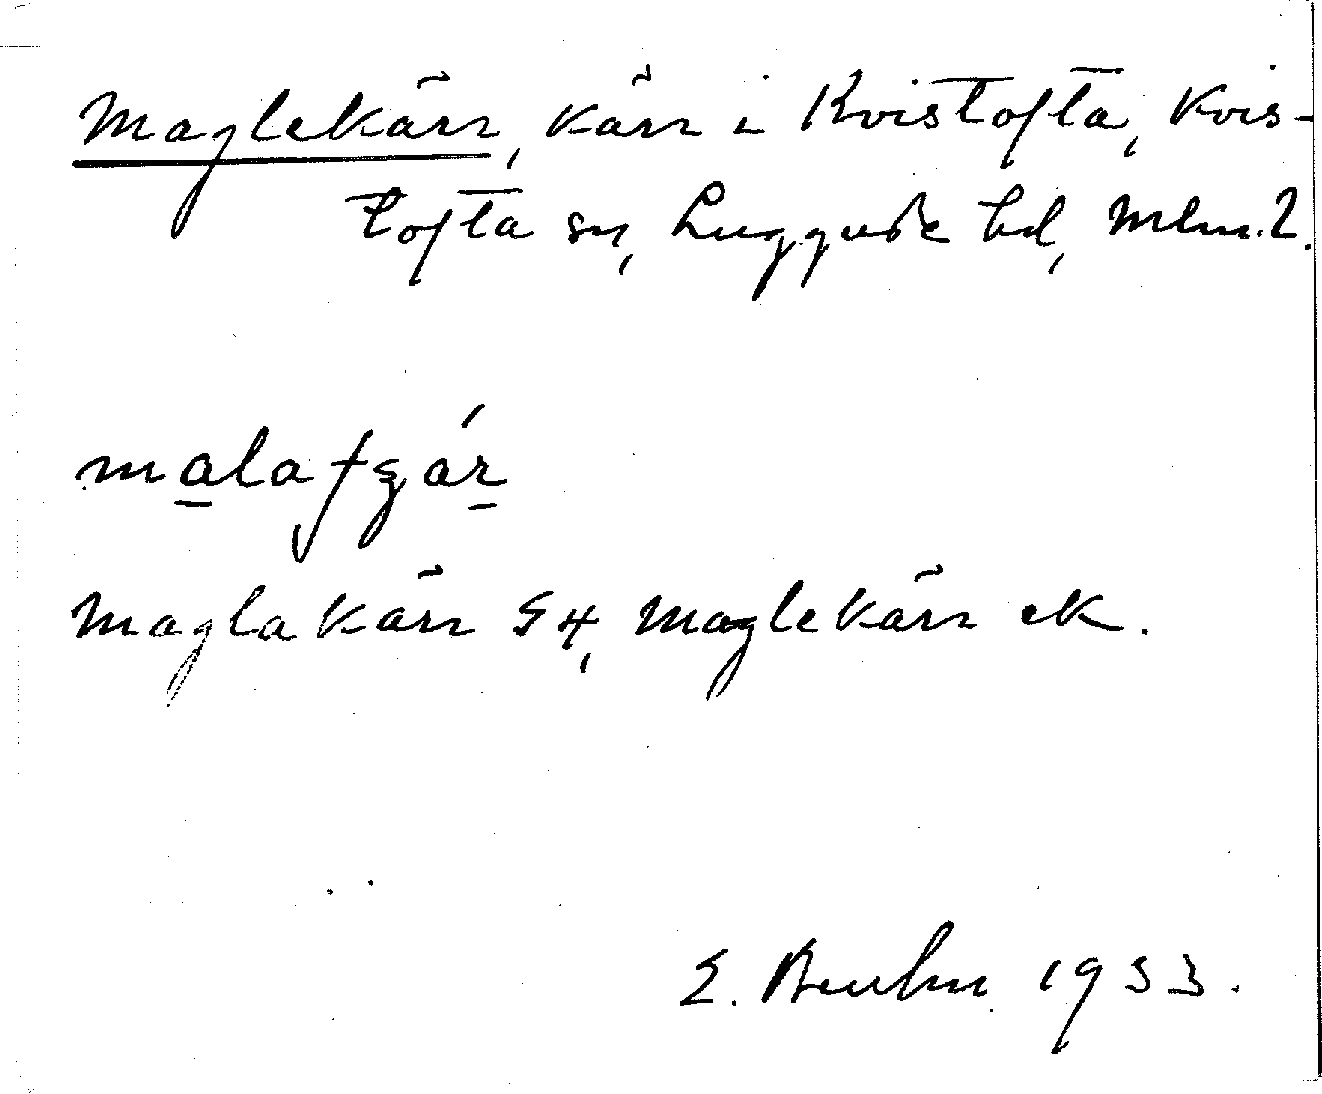 Maglekärr, kärr i Kvistofta, Kvis-
tofta sn, Luggude hd, Mlm. l.
Maglakärr S4, Maglekärr ek.
E. 1933.